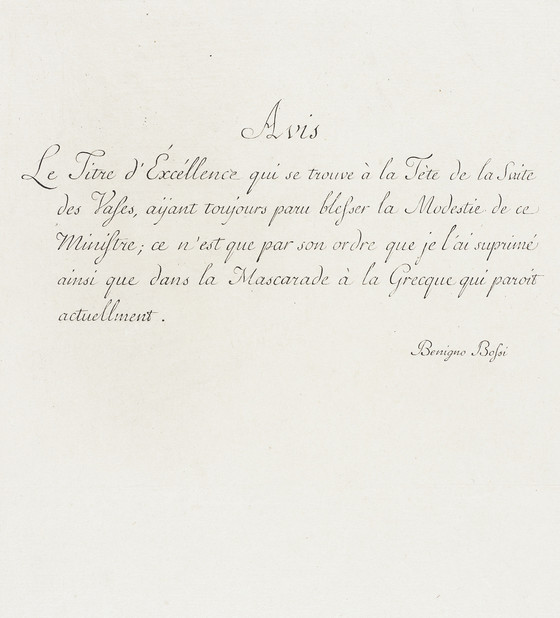 Avis
Le Titre d'Éxcéllence qui se trouve à la Tête de la Suite
des Vases, aÿant toujours paru blesser la Modestie de ce
Ministre; ce n'est que par son ordre que je l'ai suprimé
ainsi que dans la Mascarade à la Grecque qui paroit
actuellment.
Benigno Bossi